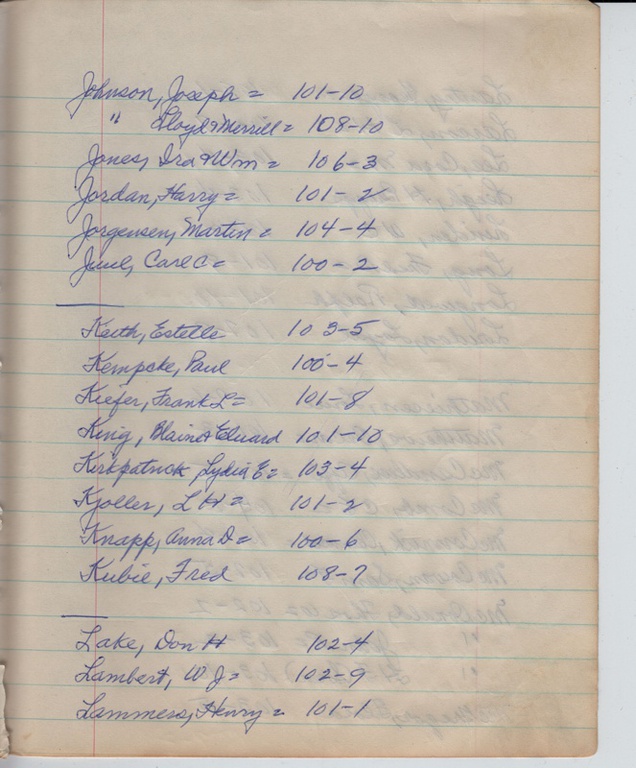 Johnson, Joseph = 101-10
" Lloyd & Merrill = 108-10
Jones, Ira & Wm = 106-3
Jordan, Harry = 101-2
Jorgensen, Martin = 104-4
Juul, Carl C = 100-2
Keith, Estelle 103-5
Kempcke, Paul 100-4
Kiefer, Frank L = 101-8
King, Blain & Eduard 101-10
Kirkpatrick Lydia E = 103-4
Kjoller, L H = 101-2
Knapp, Anna D = 100-6
Kubie, Fred 108-7
Lake, Don H 102-4
Lambert, W J = 102-9
Lammers, Henry = 101-1